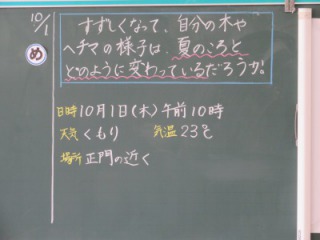 10/1
め
すずしくなって、自分の木や
ヘチマの様子は、夏のころと
どのように変わっているだろうか。
日時 10月1日(木)午前10時
天気 くもり 気温 23℃
場所 正門の近く